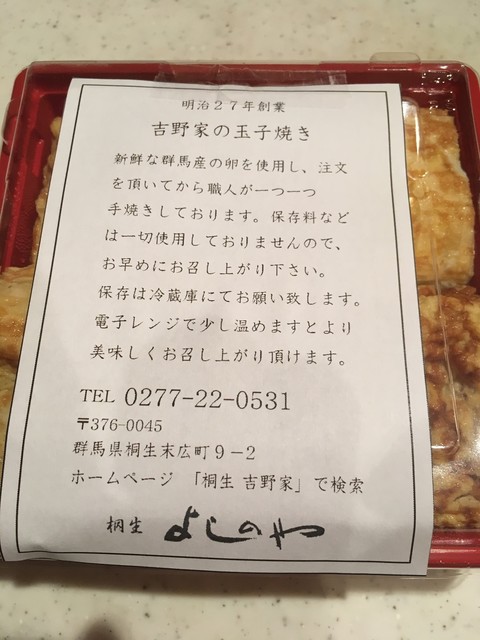 明治27年創業
吉野家の玉子焼き
新鮮な群馬産の卵を使用し、注文
を頂いてから職人が一つ一つ
手焼きしております。保存料など
は一切使用しておりませんので、
お早めにお召し上がり下さい。
保存は冷蔵庫にてお願い致します。
電子レンジで少し温めますとより
美味しくお召し上がり頂けます。
TEL 0277-22-0531
〒376-0045
群馬県桐生末広町9-2
ホームページ 「桐生 吉野家」で検索
桐生 よしのや